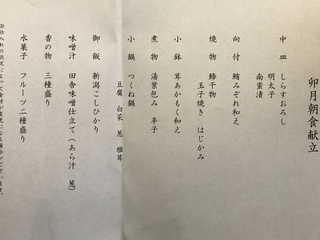 卯月朝食献立
中皿 しらすおろし
明太子
南蛮漬
向付 鮪みぞれ和え
焼物 鯵干物
玉子焼き はじかみ
小鉢 茸あかもく和え
煮物 湯葉包み 辛子
小鍋 つくね鍋
豆腐 白菜 葱 椎茸
御飯 新潟こしひかり
味噌汁 田舎味噌仕立て(あら汁 葱)
香の物 三種盛り
水菓子 フルーツ二種盛り